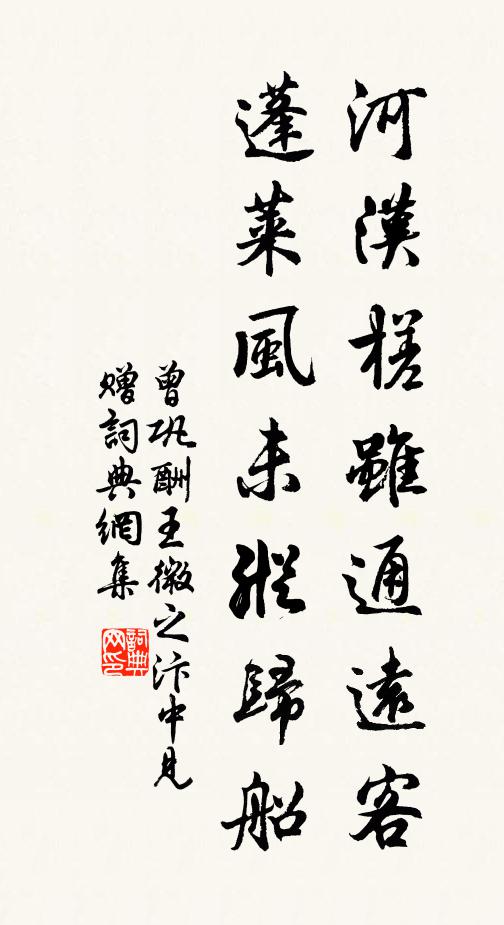 河漢槎雖通遠客
蓬萊風未縱歸船
曾巩酬王微之汴中見
贈詞典網集
詞典
网印